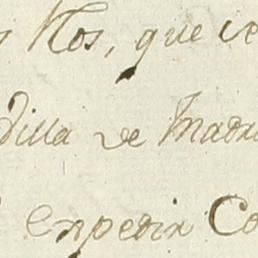 s Nos, que ce
dilla de Madri
expedir Co